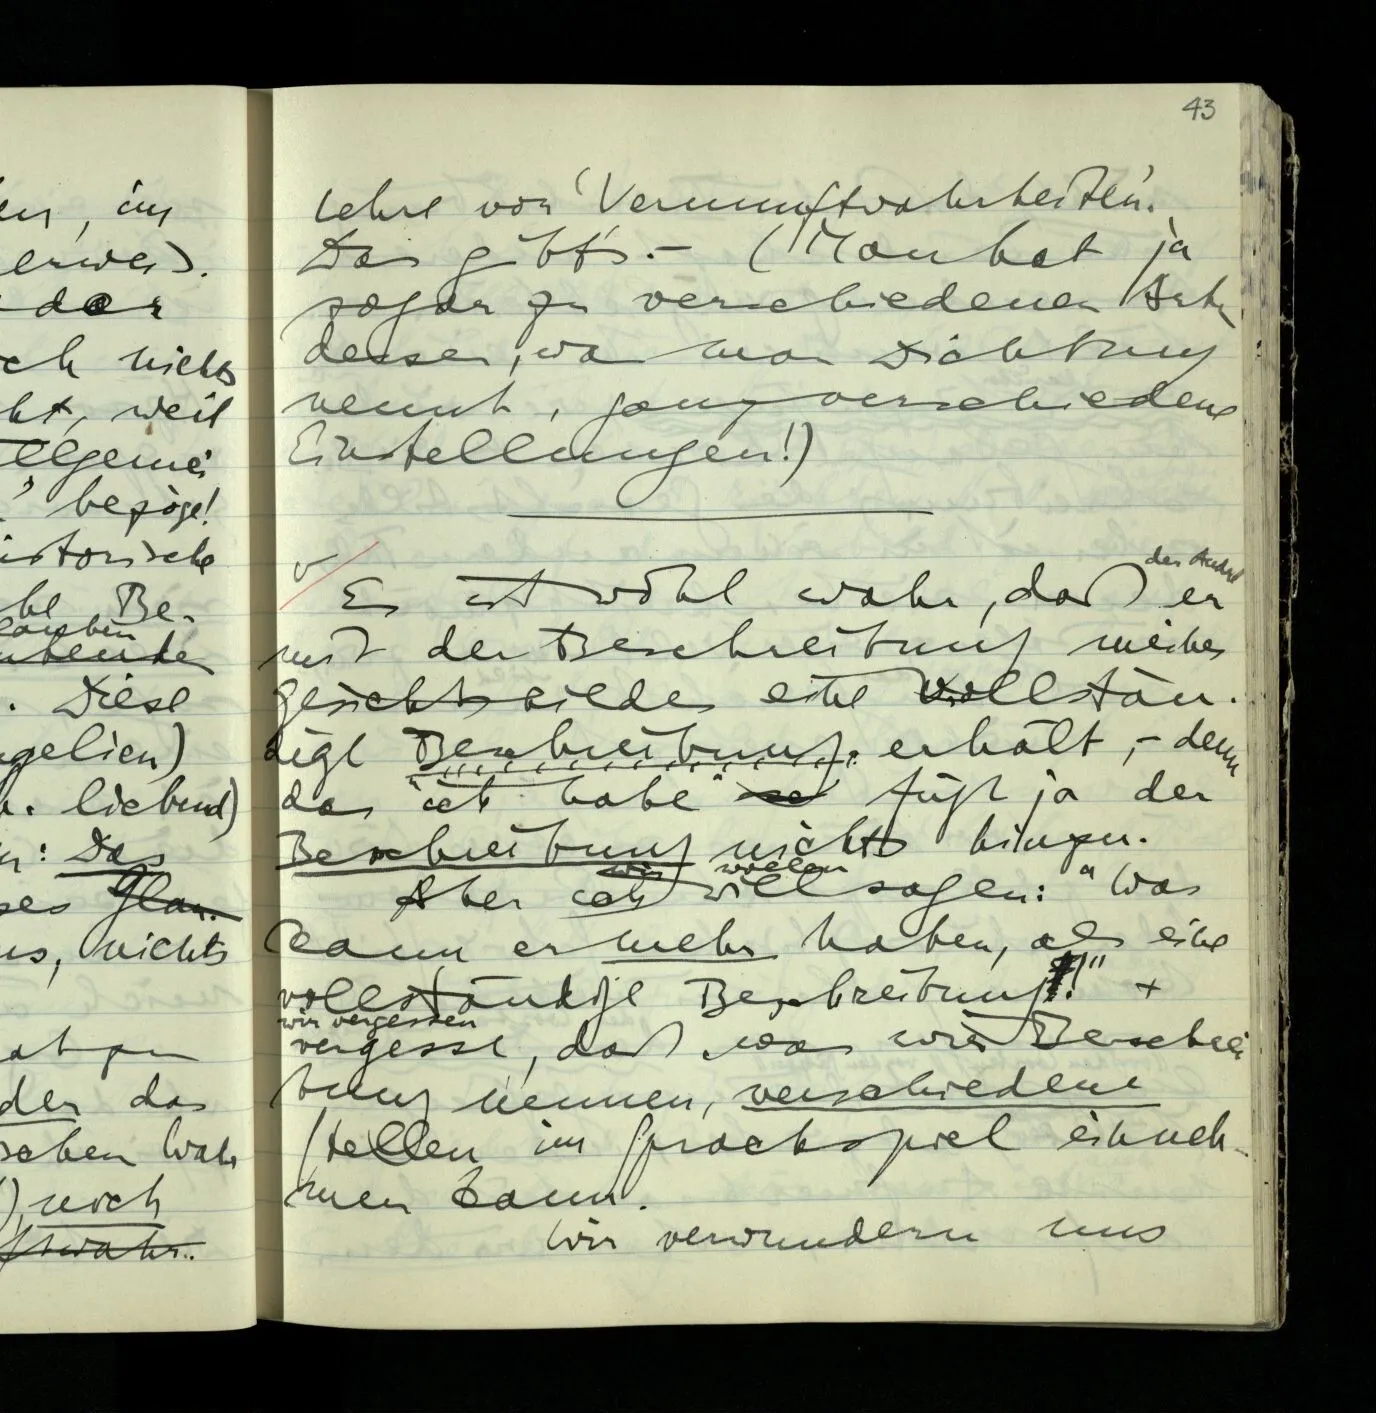 43
en, im
erweis).
der
ch nichts
ht, weil
llgemei
bezöge!
istorische
he Be-
lauben
Diese
ngelien)
liebend)
: Das
ses Glau-
us, nichts
den das
schen Wahr
), noch
ftwahr-
Lehre von 'Vernunftwahrheiten'.
Das gibt's. – (Man hat ja
sogar zu verschiedenen Arten
dessen, was man Dichtung
nennt, ganz verschiedene
Einstellungen!)
der Andre
Es ist wohl wahr, daß er
mit der Beschreibung meines
Gesichtsbildes eine vollstän-
dige Beschreibung erhält, – denn
das "ich habe" fügt ja der
Beschreibung nichts hinzu.
wir wollen
Aber ich will sagen: "Was
kann er mehr haben, als eine
vollständige Beschreibung!" +
wir vergessen
vergesse, daß, was wir Beschrei
bung nennen, verschiedene
Stellen im Sprachspiel einneh-
men kann.
Wir verwundern uns